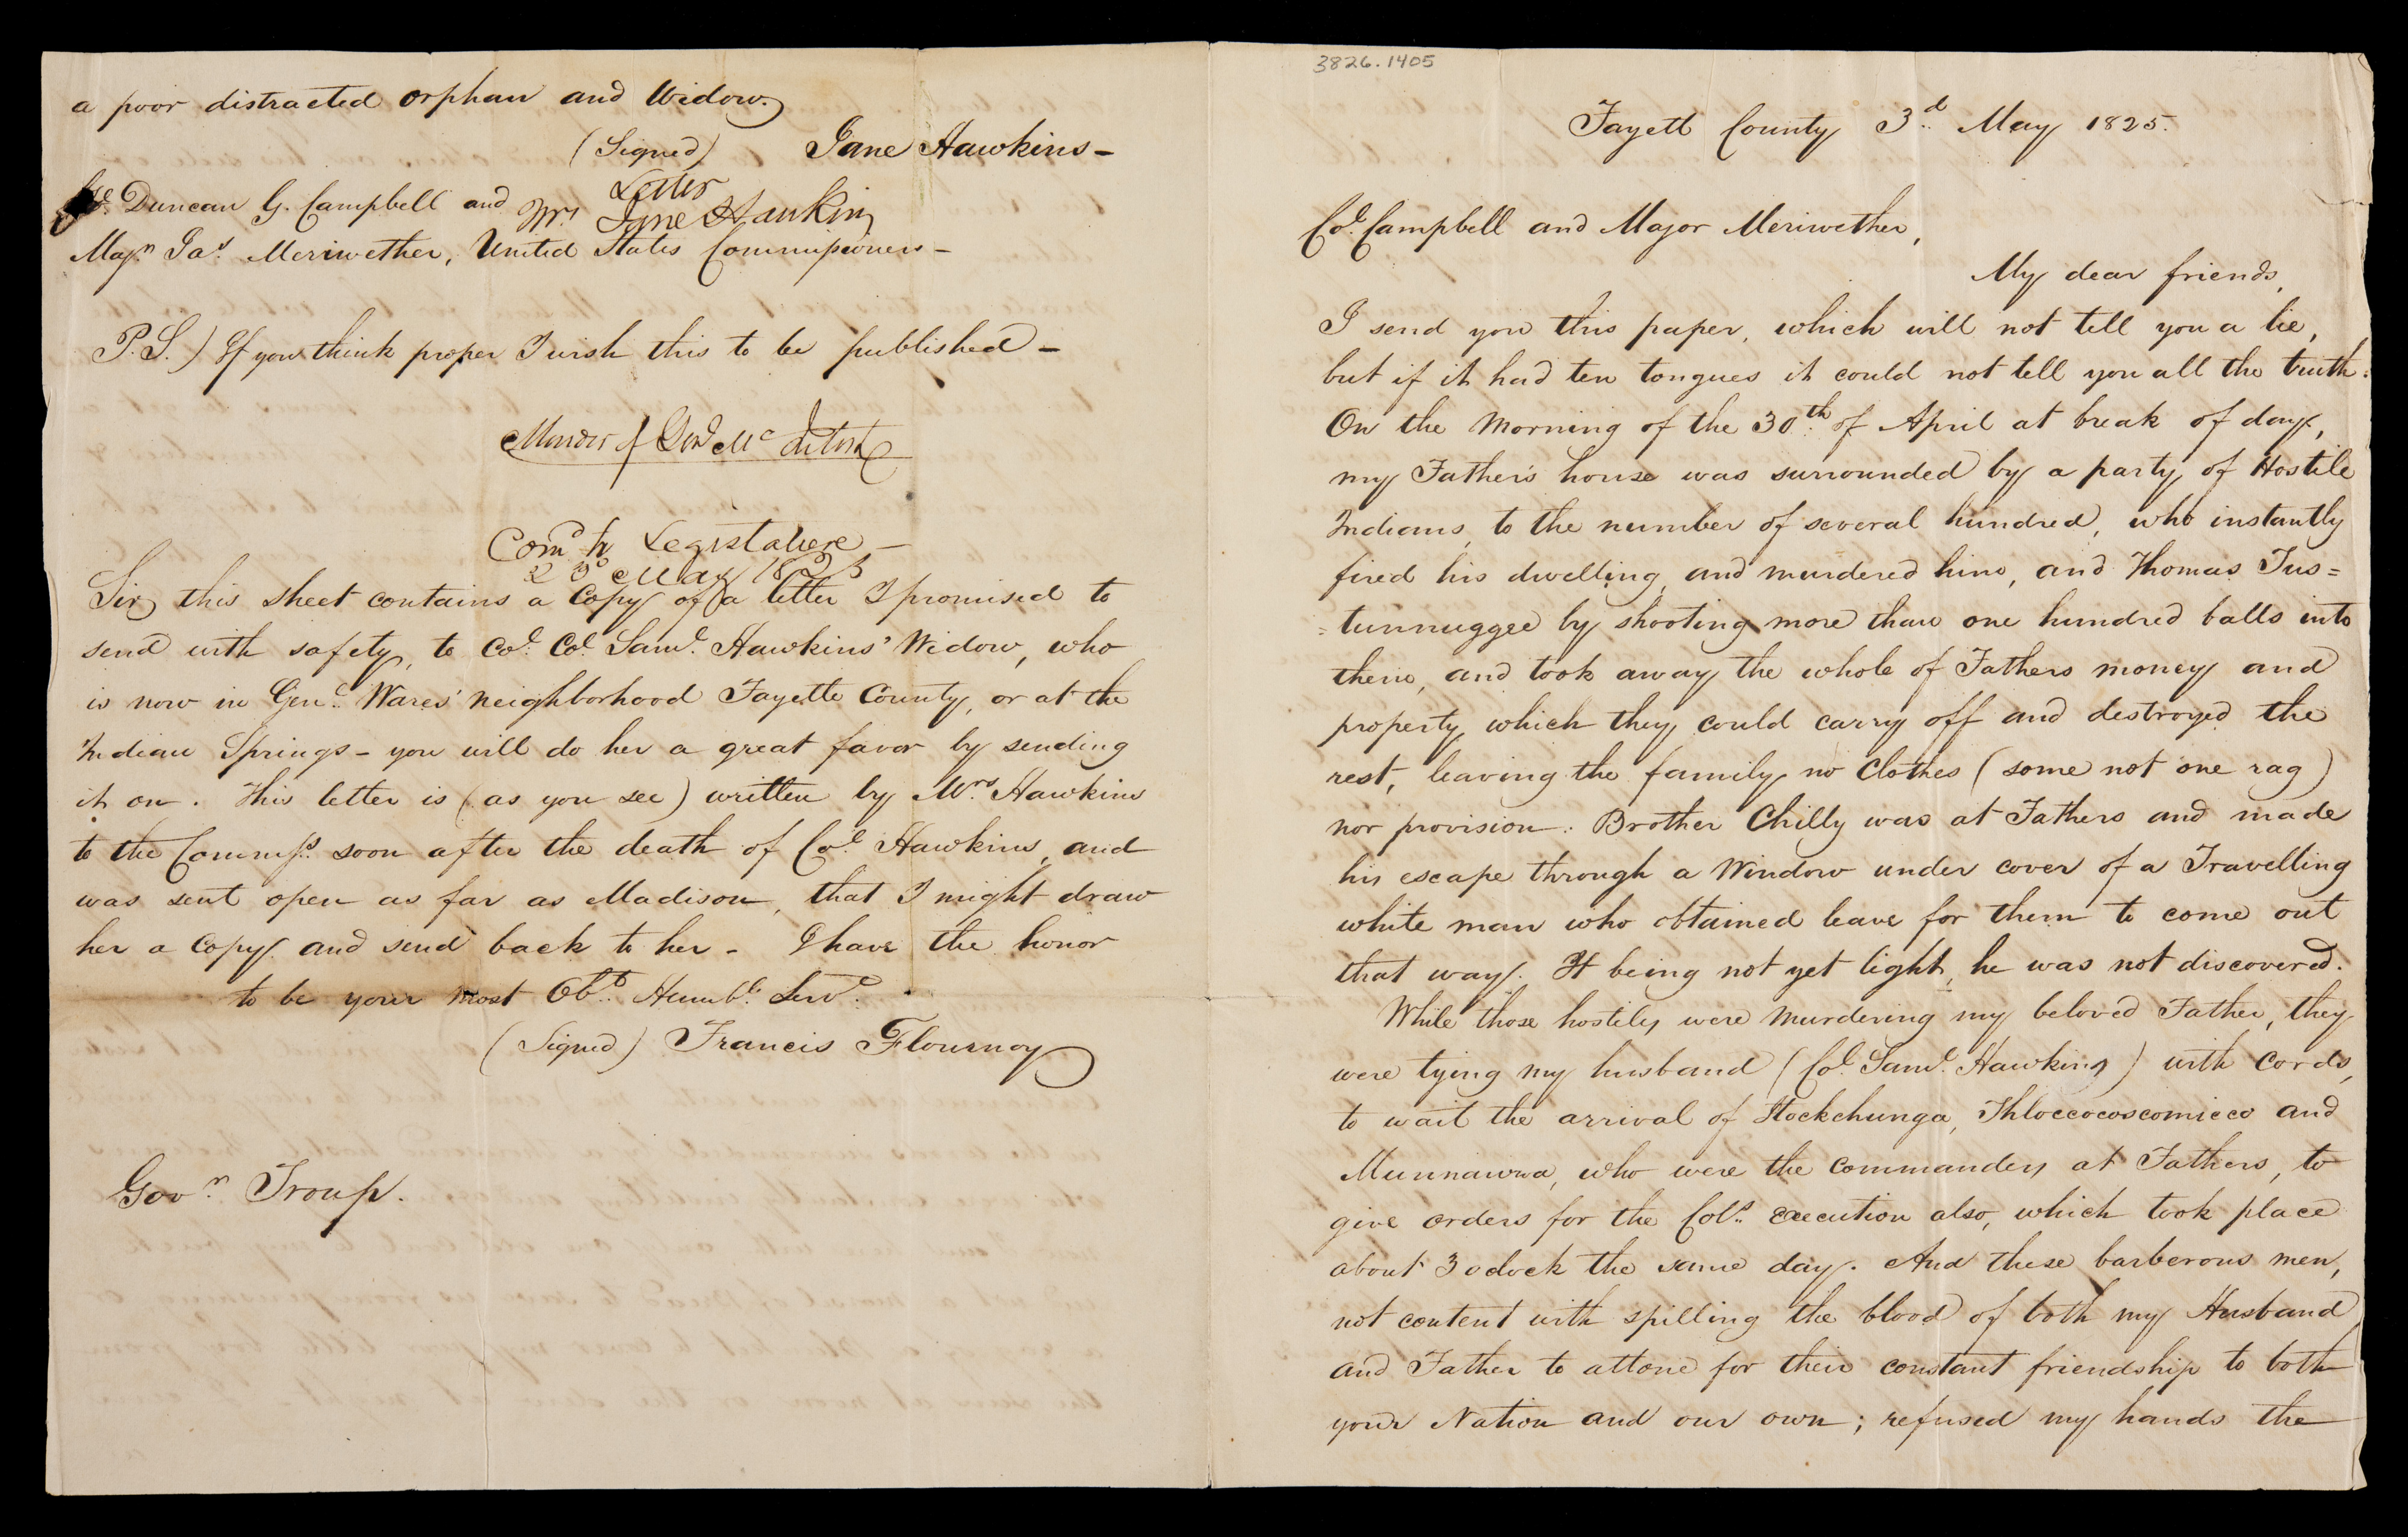 a poor distracted orphan and Widow.
(Signed) Jane Hawkins -
Duncan G. Campbell and
Majr. Jas. Meriwether, United States Commissioners -
Letter
Mrs Jane Hawkins
P.S.) If you think proper I wish this to be published -
Murder of Genl McIntosh
Comd to Legislature -
23d May 1825
Sir, this sheet contains a Copy of a letter I promised to
send with safety, to Col. Col. Saml. Hawkins' Widow, who
is now in Genl. Wares' neighborhood Fayette County, or at the
Indian Springs - you will do her a great favor by sending
it on. This letter is (as you see) written by Mrs Hawkins
to the Commrs. soon after the death of Col. Hawkins, and
was sent open as far as Madison, that I might draw
her a Copy. and send back to her - I have the honor
to be your most Obt. Humbl. Servt.
(Signed) Francis Flournoy
Govr. Troup.
3826.1405
Fayett County 3d. May 1825.
Col. Campbell and Major Meriwether,
My dear friends,
I send you this paper, which will not tell you a lie,
but if it had ten tongues it could not tell you all the truth.
On the Morning of the 30th. of April at break of day,
my Father's house was surrounded by a party of Hostile
Indians, to the number of several hundred, who instantly
fired his dwelling, and murdered him, and Thomas Tus=
=tunnuggee by shooting more than one hundred balls into
them, and took away the whole of Fathers money and
property which they could carry off and destroyed the
rest, leaving the family no Clothes (some not one rag)
nor provision. Brother Chilly was at Fathers and made
his escape through a Window under cover of a Travelling
white man who obtained leave for them to come out
that way. It being not yet light, he was not discovered.
While those hostiles were murdering my beloved Father, they
were tying my husband (Col. Saml. Hawkins) with Cords,
to wait the arrival of Itockchunga, Thloccocoscomicco and
Munnawwa, who were the commanders at Fathers, to
give orders for the Cols. execution also, which took place
about 3 oclock the same day. And these barberous men,
not content with spilling the blood of both my Husband
and Father to attone for their constant friendship to both
your Nation and our own; refused my hands the